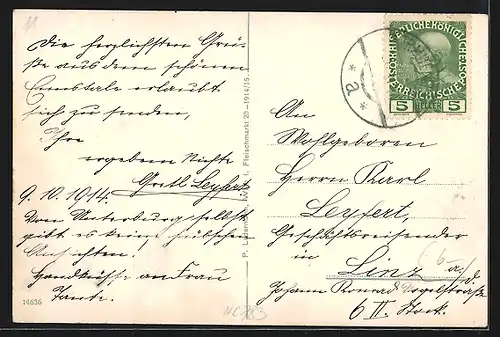 Die herzlichsten Grü-
ße aus dem schönen
Ennstale erlaubt
sich zu senden,
Ihre
ergebene Nichte
Gretl Leyfert
9. 10. 1914.
Von Unterburg selbst
gibt es keine hübschen
Ansichten!
Handküsse an Frau
Tante.
14636
P. Wien, I. Fleischmarkt 20 - 1914/15
KAISERLICHE KÖNIGLICHE
ÖSTERREICHISCHE
5 HELLER 5
* a *
An
Wohlgeboren
Herrn Karl
Leyfert,
Geschäftsreisender
in
Linz a/d.
Johann Konrad Vogelstraße
6 II. Stock.